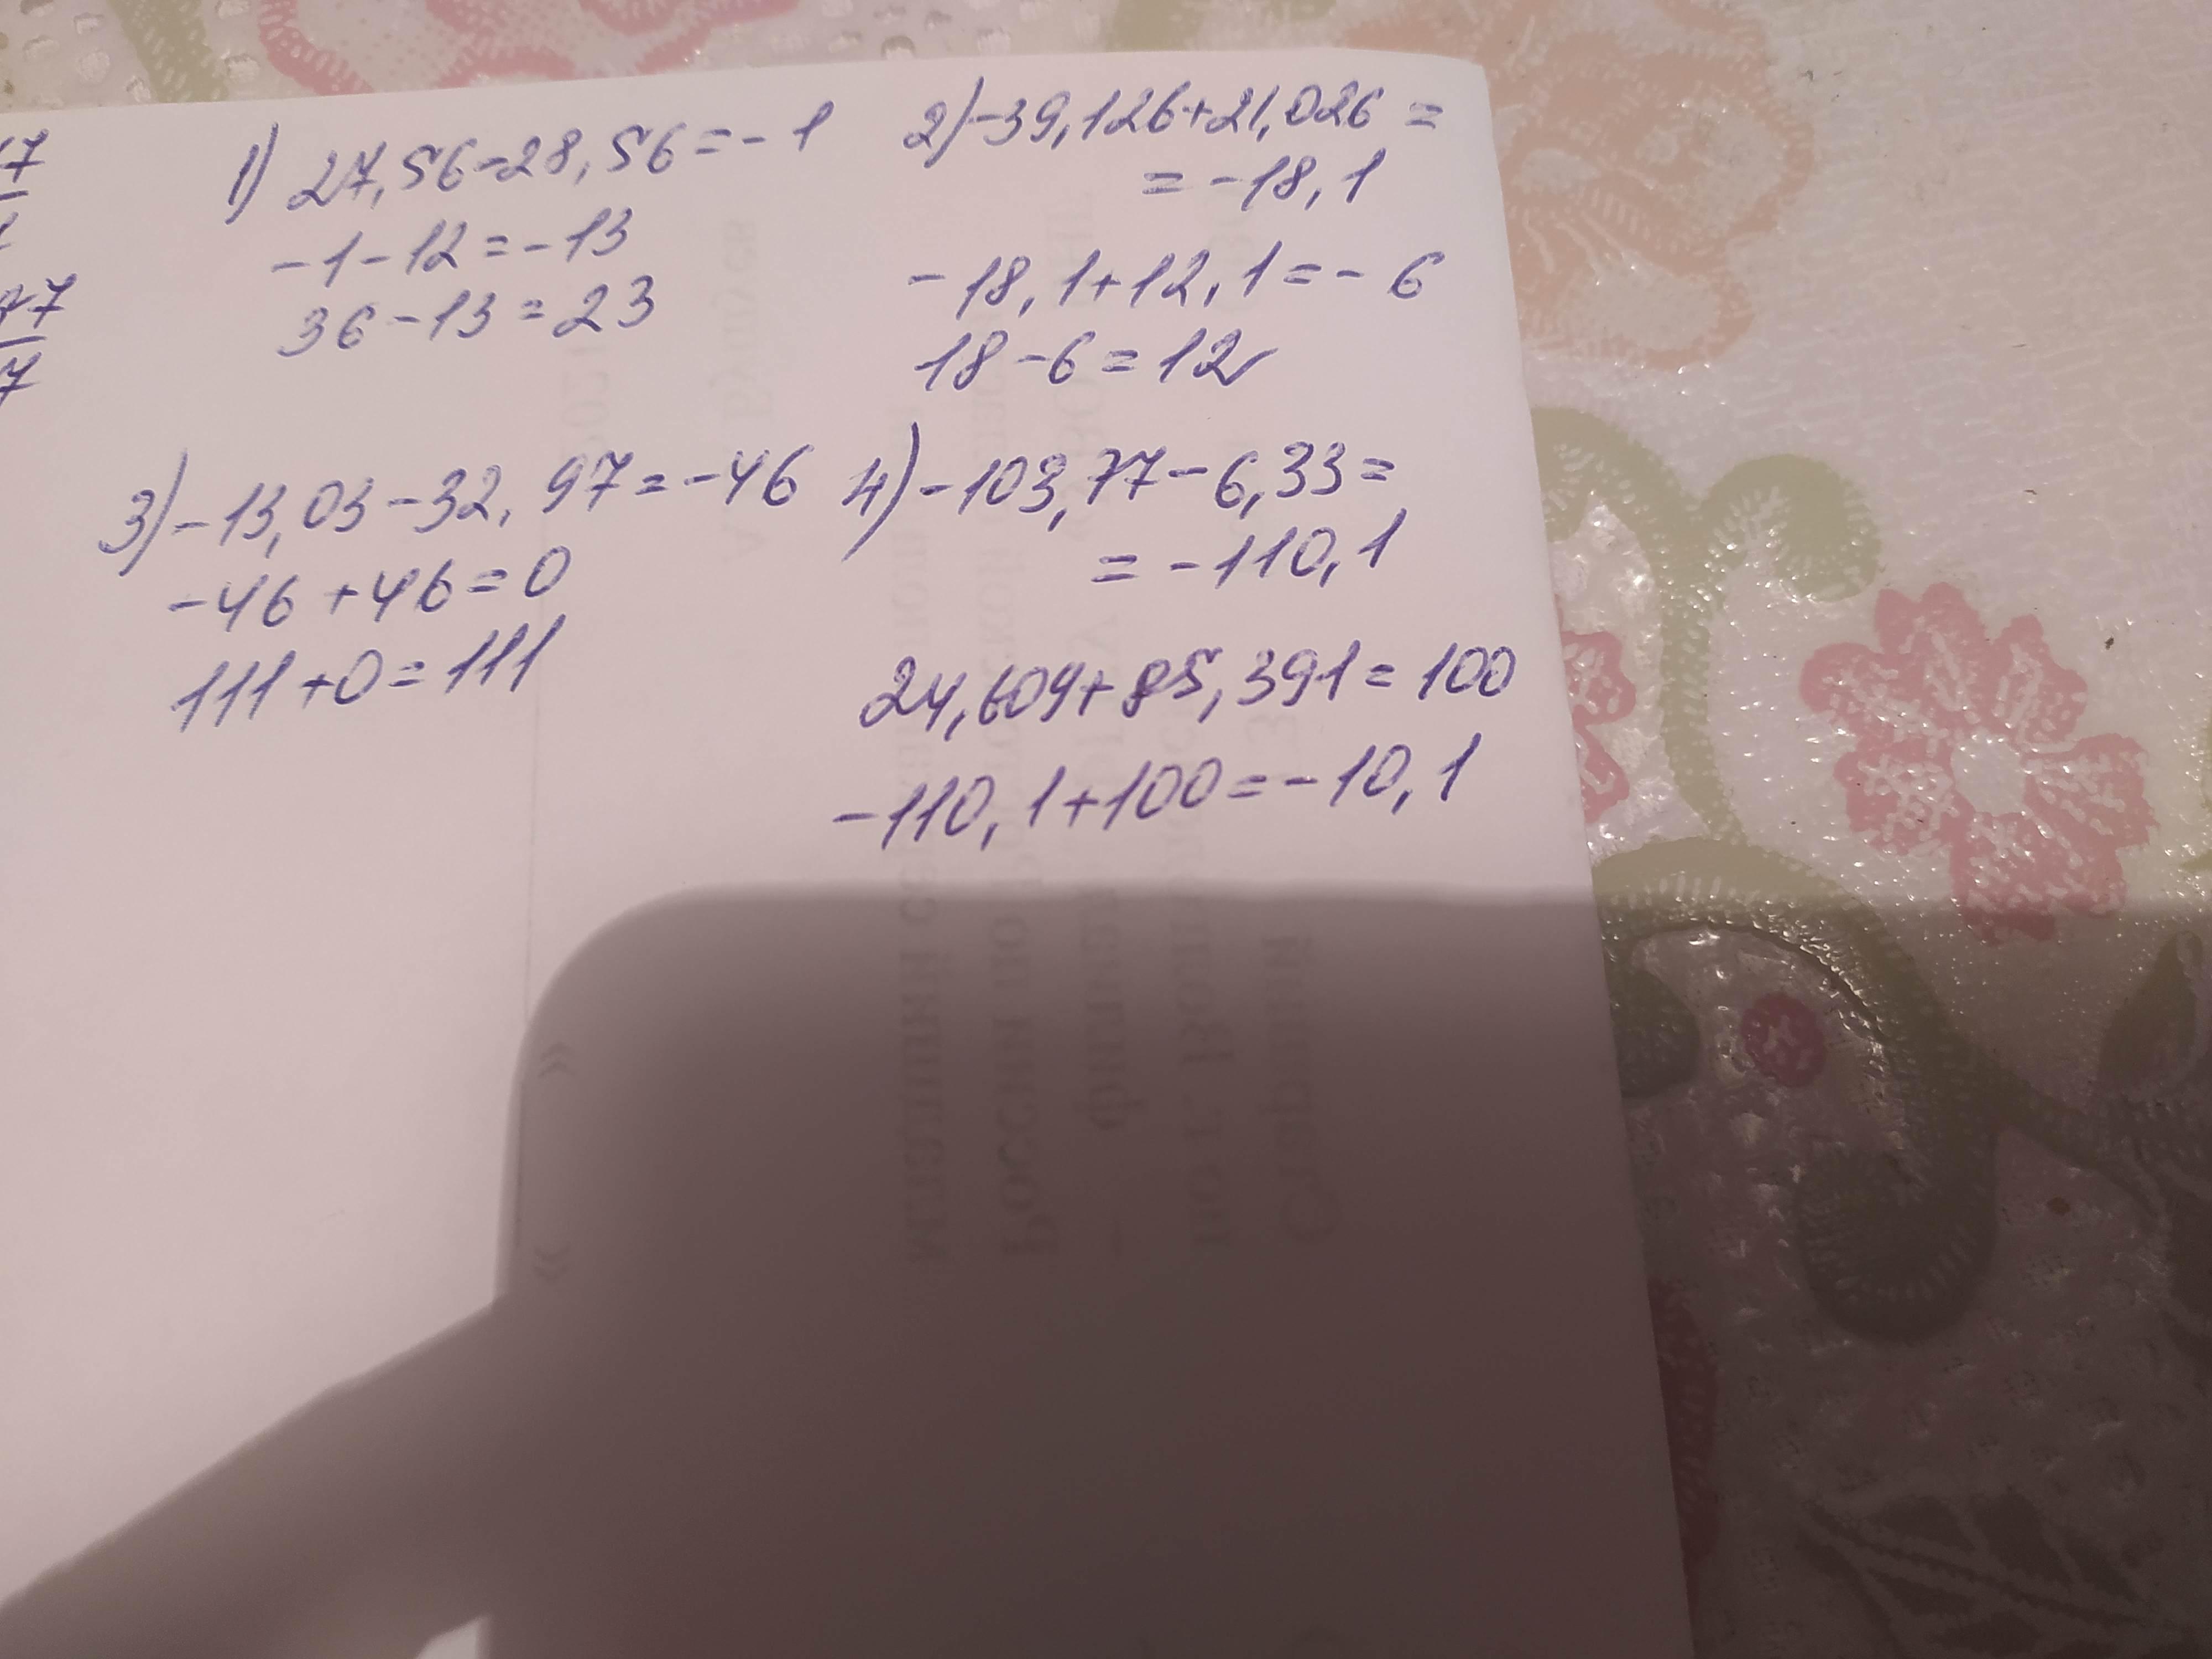 17
1
1) 27,56-28,56=-1
-1-12=-13
36-13=23
2) -39,126+21,026=
=-18,1
-18,1+12,1=-6
18-6=12
77
7
3) -13,03-32,97=-46
-46+46=0
111+0=111
4) -103,77-6,33=
=-110,1
24,609+85,391=100
-110,1+100=-10,1
»
«